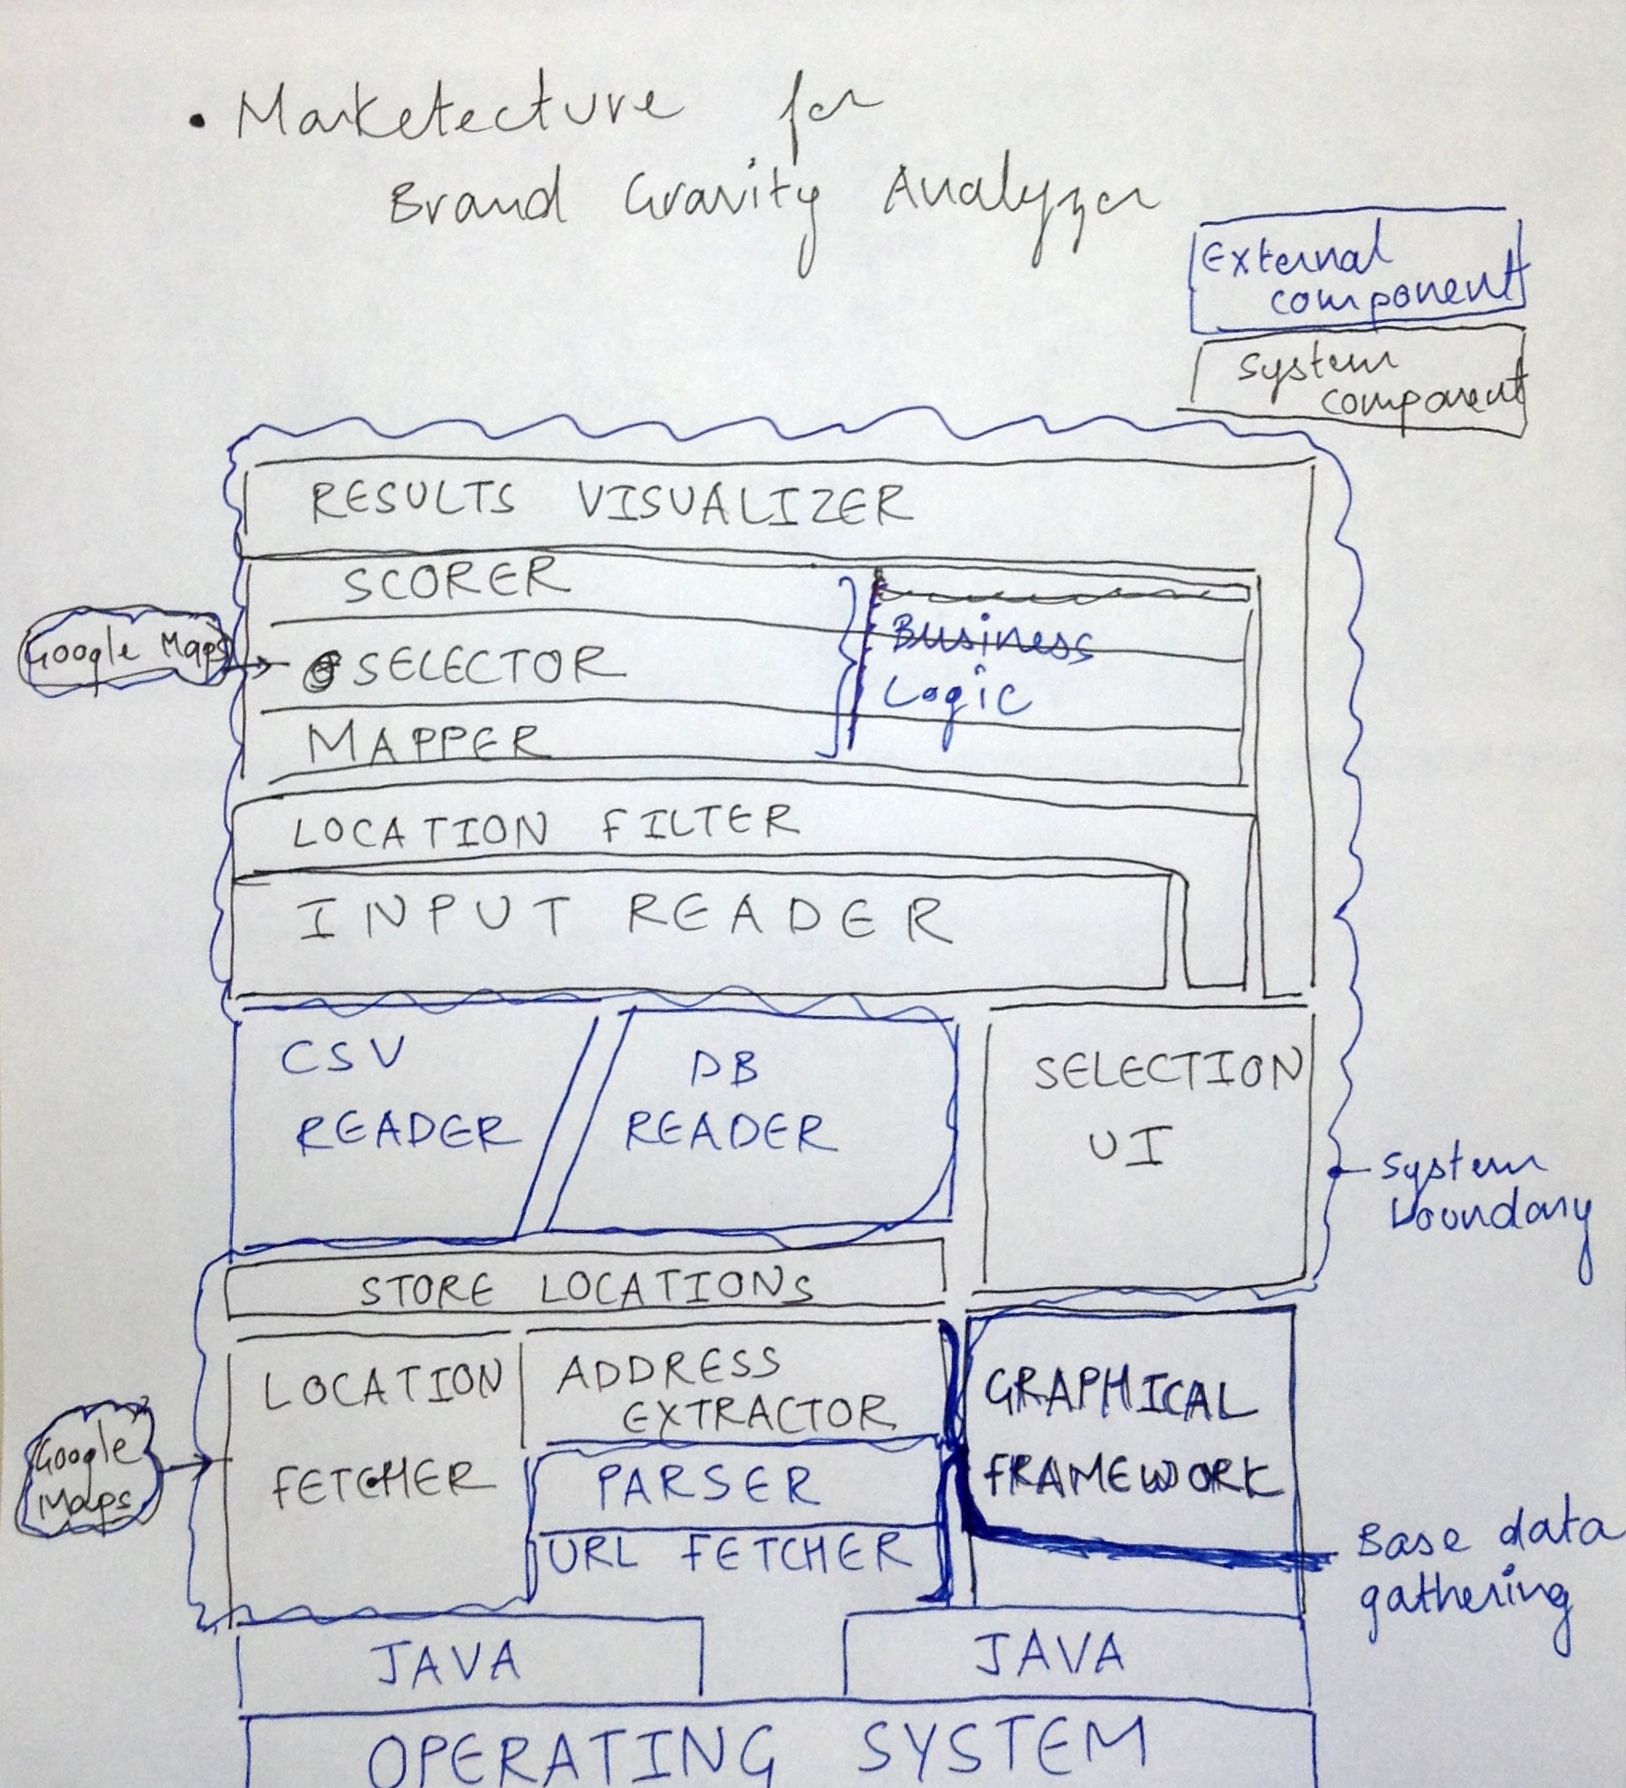 • Marketecture for
Brand Gravity Analyzer
External
component
System
component
RESULTS VISUALIZER
SCORER
Google Maps
SELECTOR
Business
Logic
MAPPER
LOCATION FILTER
INPUT READER
CSV
READER
DB
READER
SELECTION
UI
System
boundary
STORE LOCATIONS
LOCATION
FETCHER
ADDRESS
EXTRACTOR
GRAPHICAL
FRAMEWORK
Google
Maps
PARSER
URL FETCHER
Base data
gathering
JAVA
JAVA
OPERATING SYSTEM